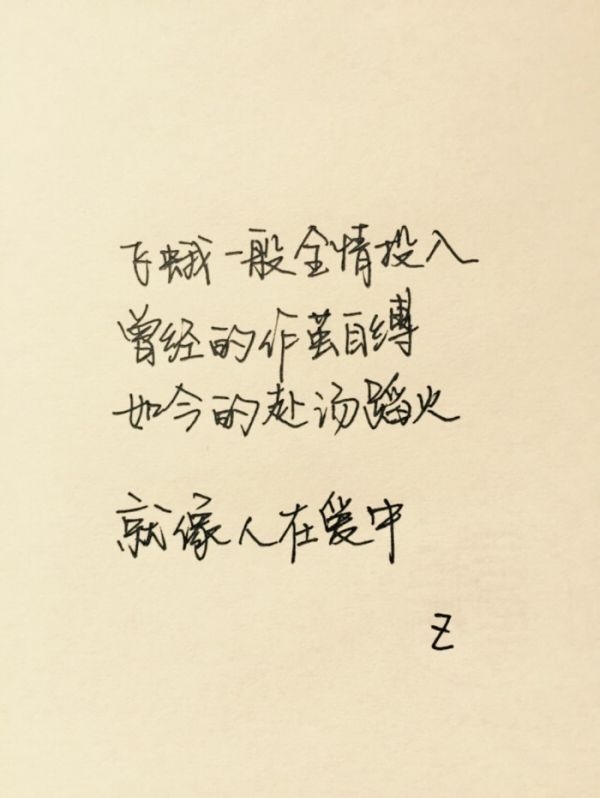 飞蛾一般全情投入
曾经的作茧自缚
如今的赴汤蹈火
就像人在爱中
Z